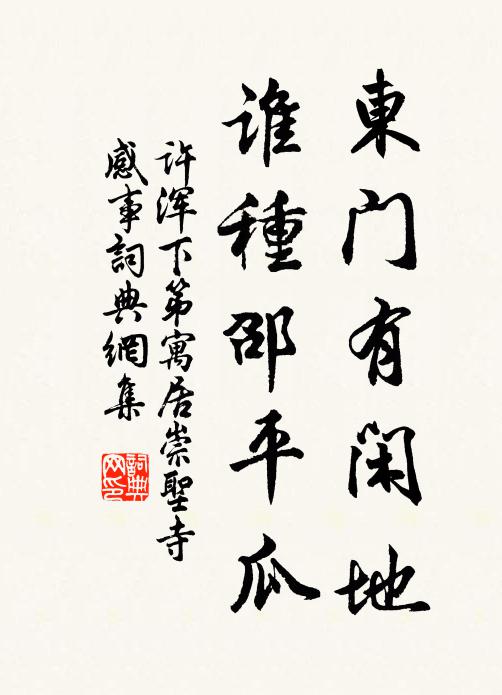 東门有閑地
谁種邵平瓜
许浑下第寓居崇聖寺
感事詞典網集
詞典
网印